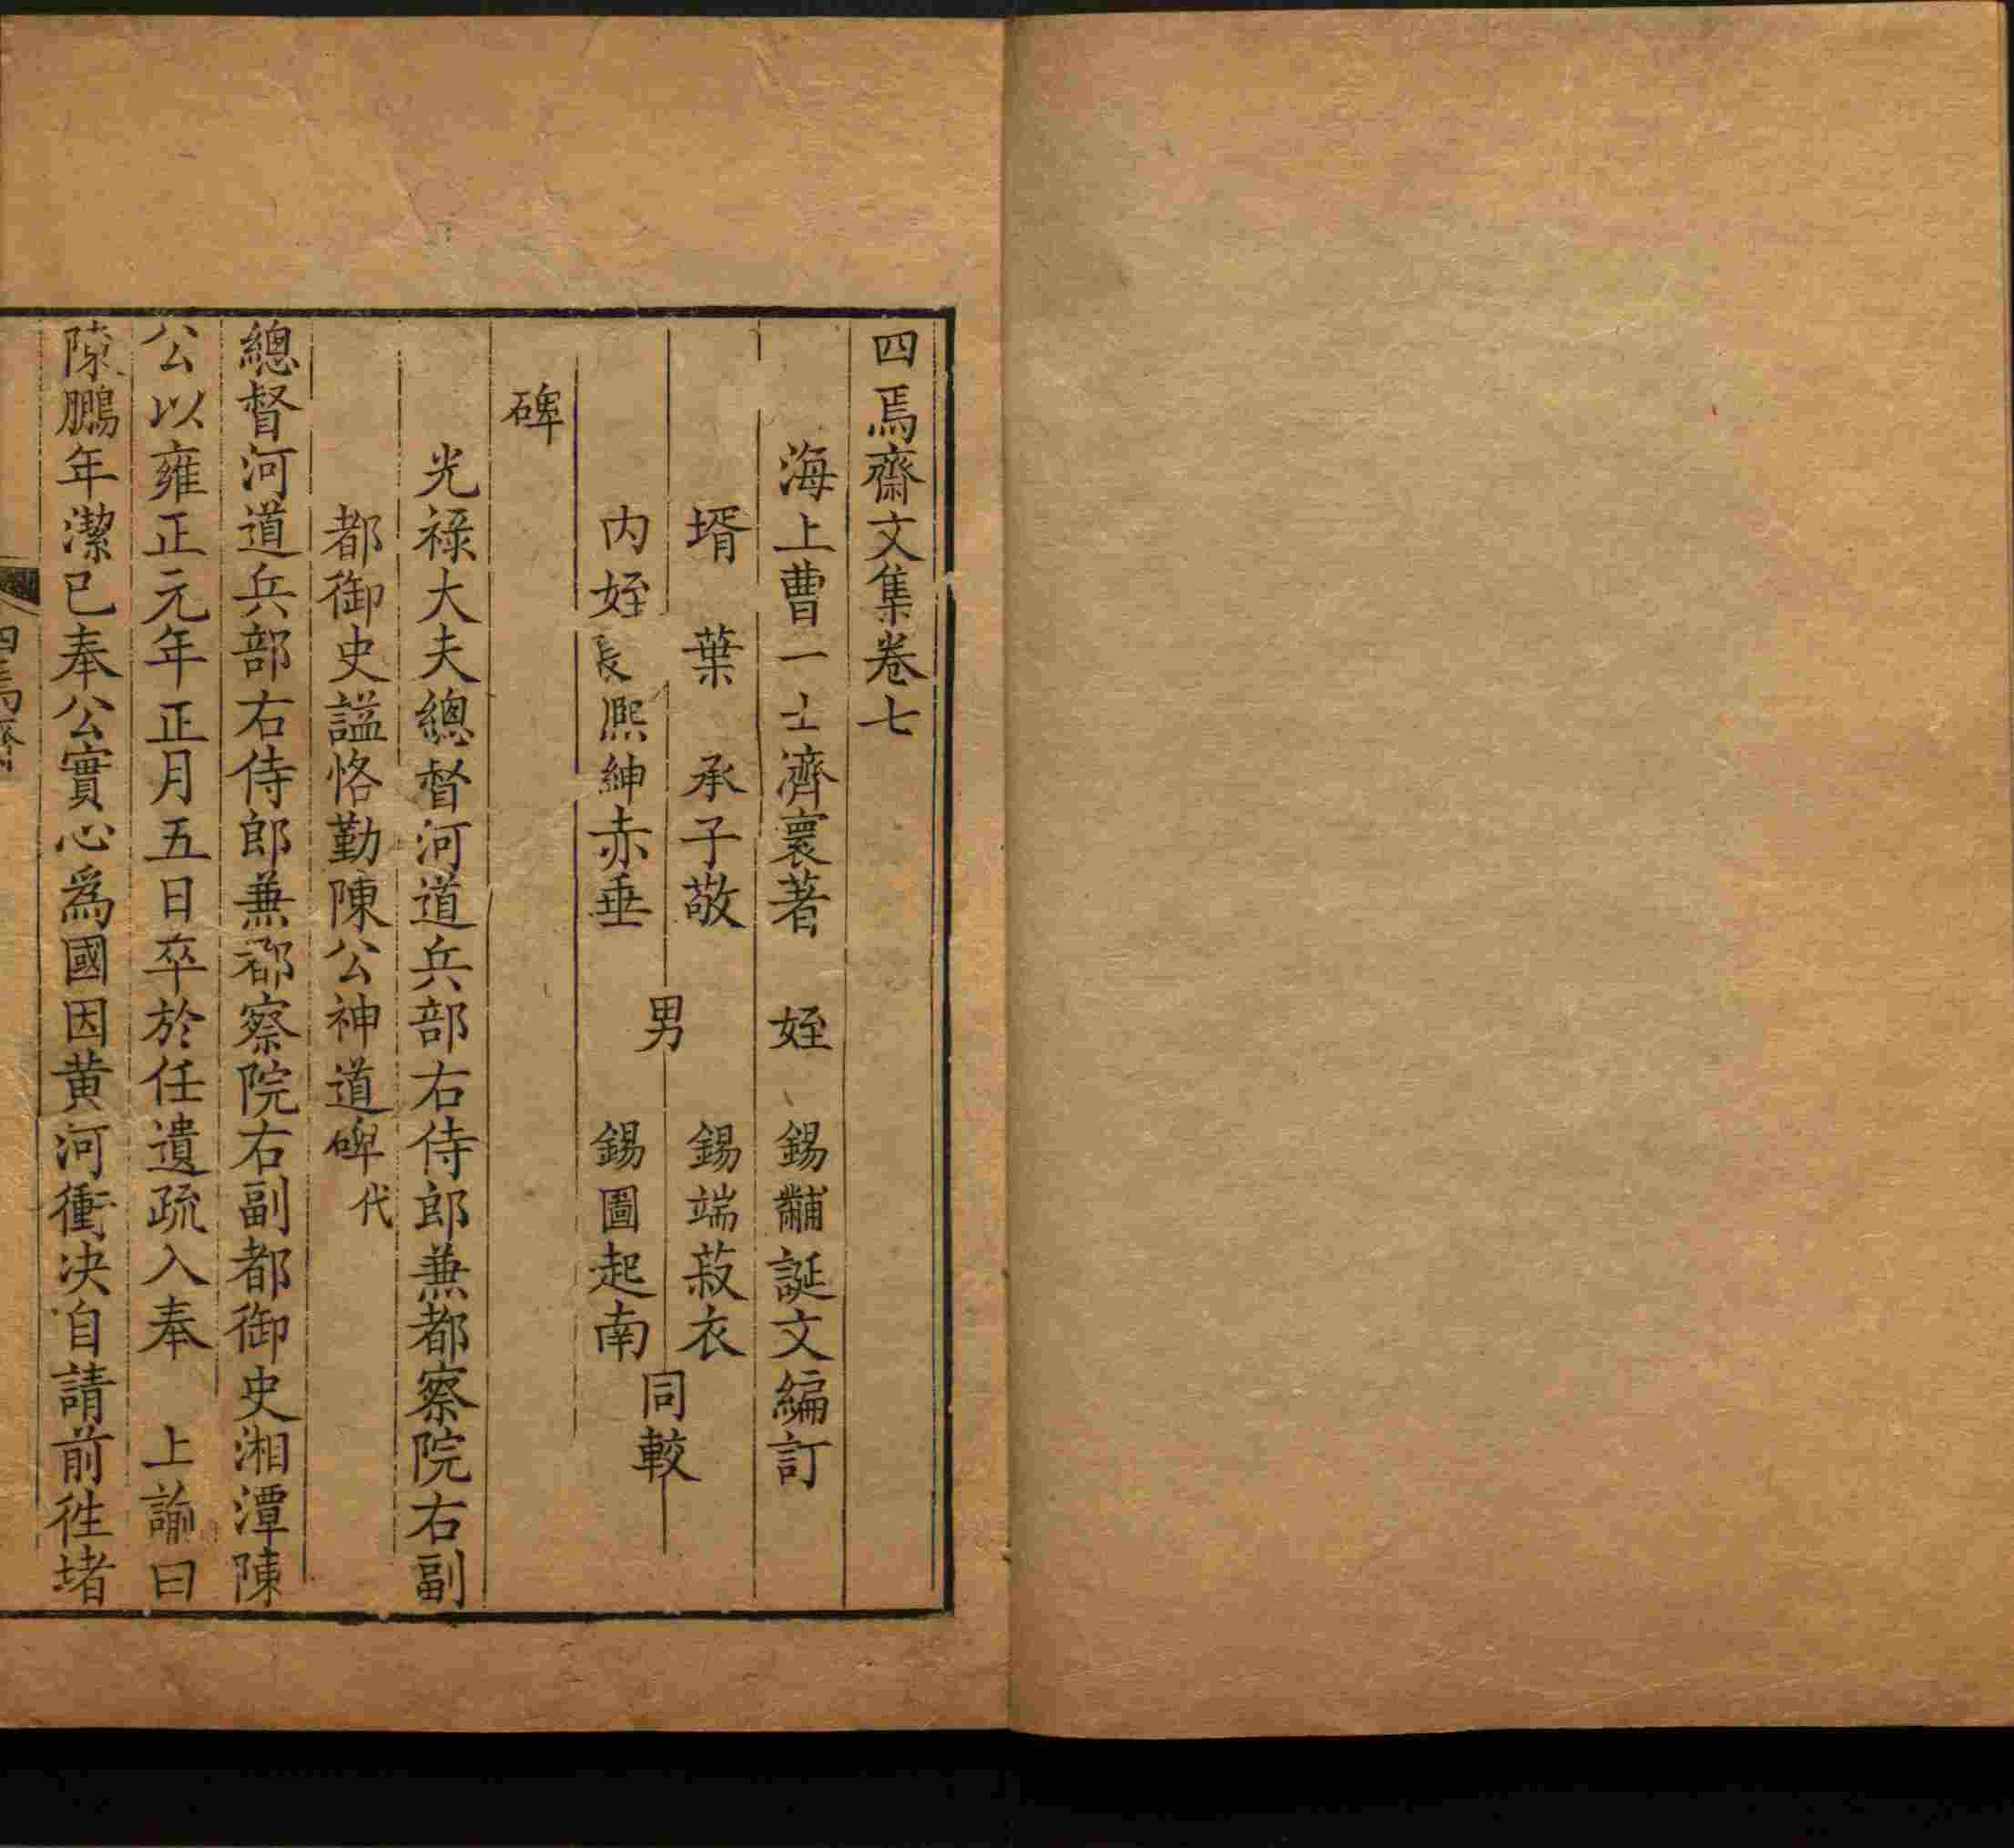 四焉齋文集卷七
海上曹一士濟寰著 姪 錫黼誕文編訂
壻 葉 承子敬 男 錫端菽衣 同較
内姪長熈紳赤垂 錫圖起南
碑
光禄大夫總督河道兵部右侍郎兼都察院右副
都御史謚恪勤陳公神道碑代
總督河道兵部右侍郎兼都察院右副都御史湘潭陳
公以雍正元年正月五日卒於任遺疏入奉 上諭曰
陳鵬年潔已奉公實心為國因黄河衝决自請前徃堵
四焉齋